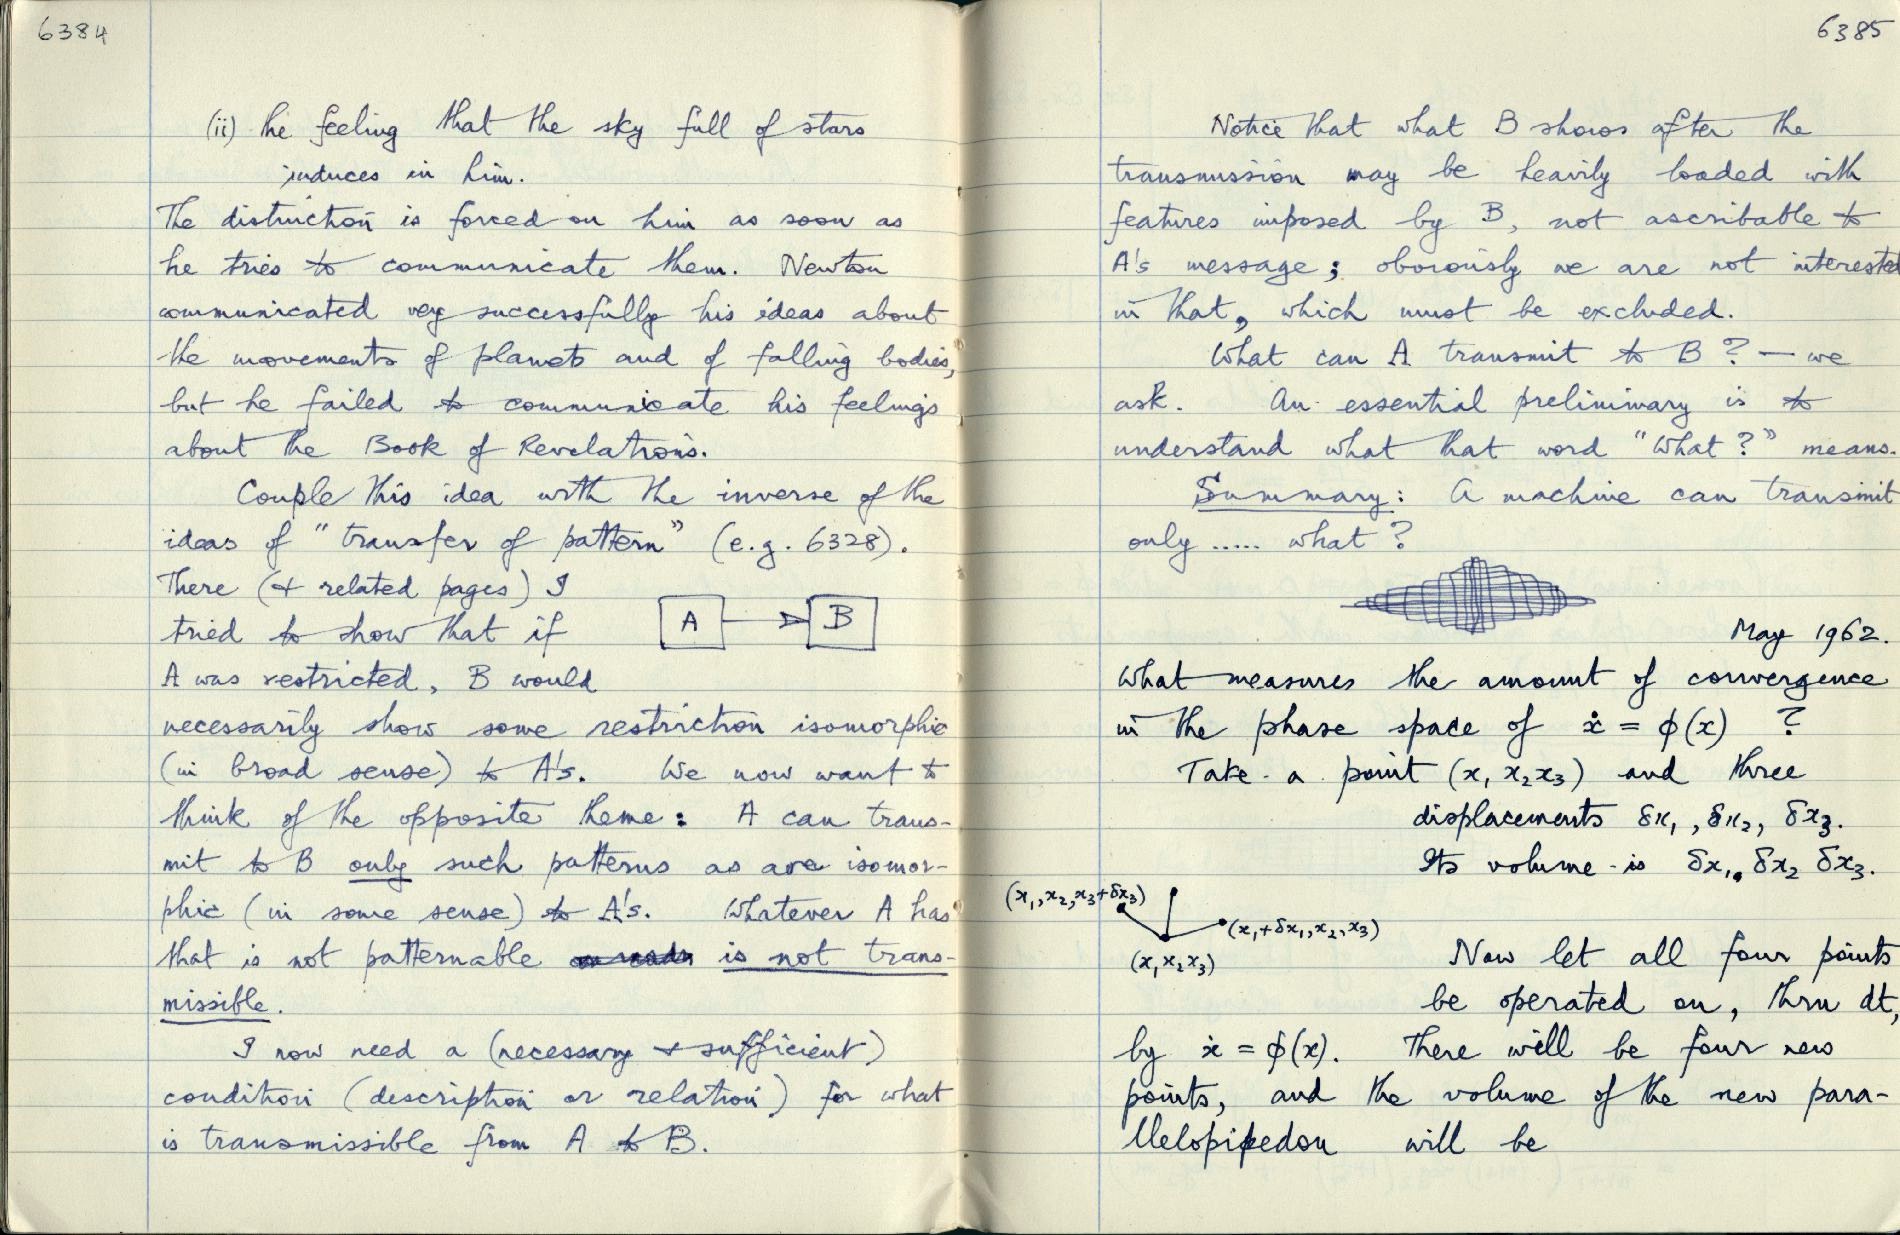 6384
(ii) he feeling that the sky full of stars
induces in him.
The distinction is forced on him as soon as
he tries to communicate them. Newton
communicated very successfully his ideas about
the movements of planets and of falling bodies,
but he failed to communicate his feelings
about the Book of Revelations.
Couple this idea with the inverse of the
ideas of "transfer of pattern" (e.g. 6328).
There (& related pages) I
tried to show that if
A B
A was restricted, B would
necessarily show some restriction isomorphic
(in broad sense) to A's. We now want to
think of the opposite theme: A can trans-
mit to B only such patterns as are isomor-
phic (in some sense) to A's. Whatever A has
that is not patternable is not trans-
missible.
I now need a (necessary & sufficient)
condition (description or relation) for what
is transmissible from A to B.
6385
Notice that what B shows after the
transmission may be heavily loaded with
features imposed by B, not ascribable to
A's message; obviously we are not interested
in that, which must be excluded.
What can A transmit to B? — we
ask. An essential preliminary is to
understand what that word "What?" means.
Summary: A machine can transmit
only ..... what?
May 1962.
What measures the amount of convergence
in the phase space of ẋ = φ(x) ?
Take a point (x₁ x₂ x₃) and three
displacements δx₁, δx₂, δx₃.
Its volume is δx₁. δx₂ δx₃.
(x₁, x₂, x₃+δx₃)
(x₁+δx₁, x₂, x₃)
(x₁ x₂ x₃)
Now let all four points
be operated on, thru dt,
by ẋ = φ(x). There will be four new
points, and the volume of the new para-
llelopipedon will be